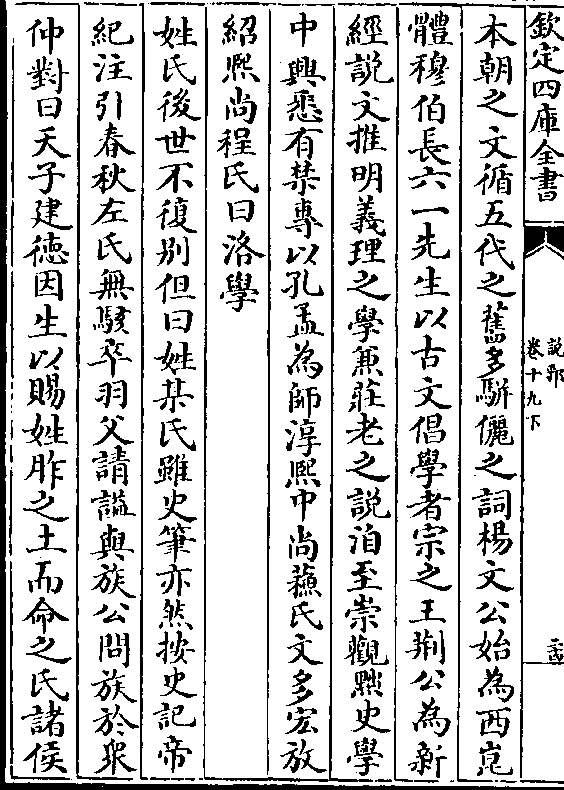 欽定四庫全書
說郛
卷十九下
本朝之文循五代之舊多駢儷之詞楊文公始為西崑
體穆伯長六一先生以古文倡學者宗之王荆公為新
經說文推明義理之學兼莊老之說洎至崇觀黜史學
中興悉有禁專以孔孟為師淳熙中尚蘓氏文多宏放
紹熙尚程氏曰洛學
姓氏後世不復別但曰姓某氏雖史筆亦然按史記帝
紀注引春秋左氏無駭卒羽父請諡與族公問族於衆
仲對曰天子建徳因生以賜姓胙之土而命之氏諸侯